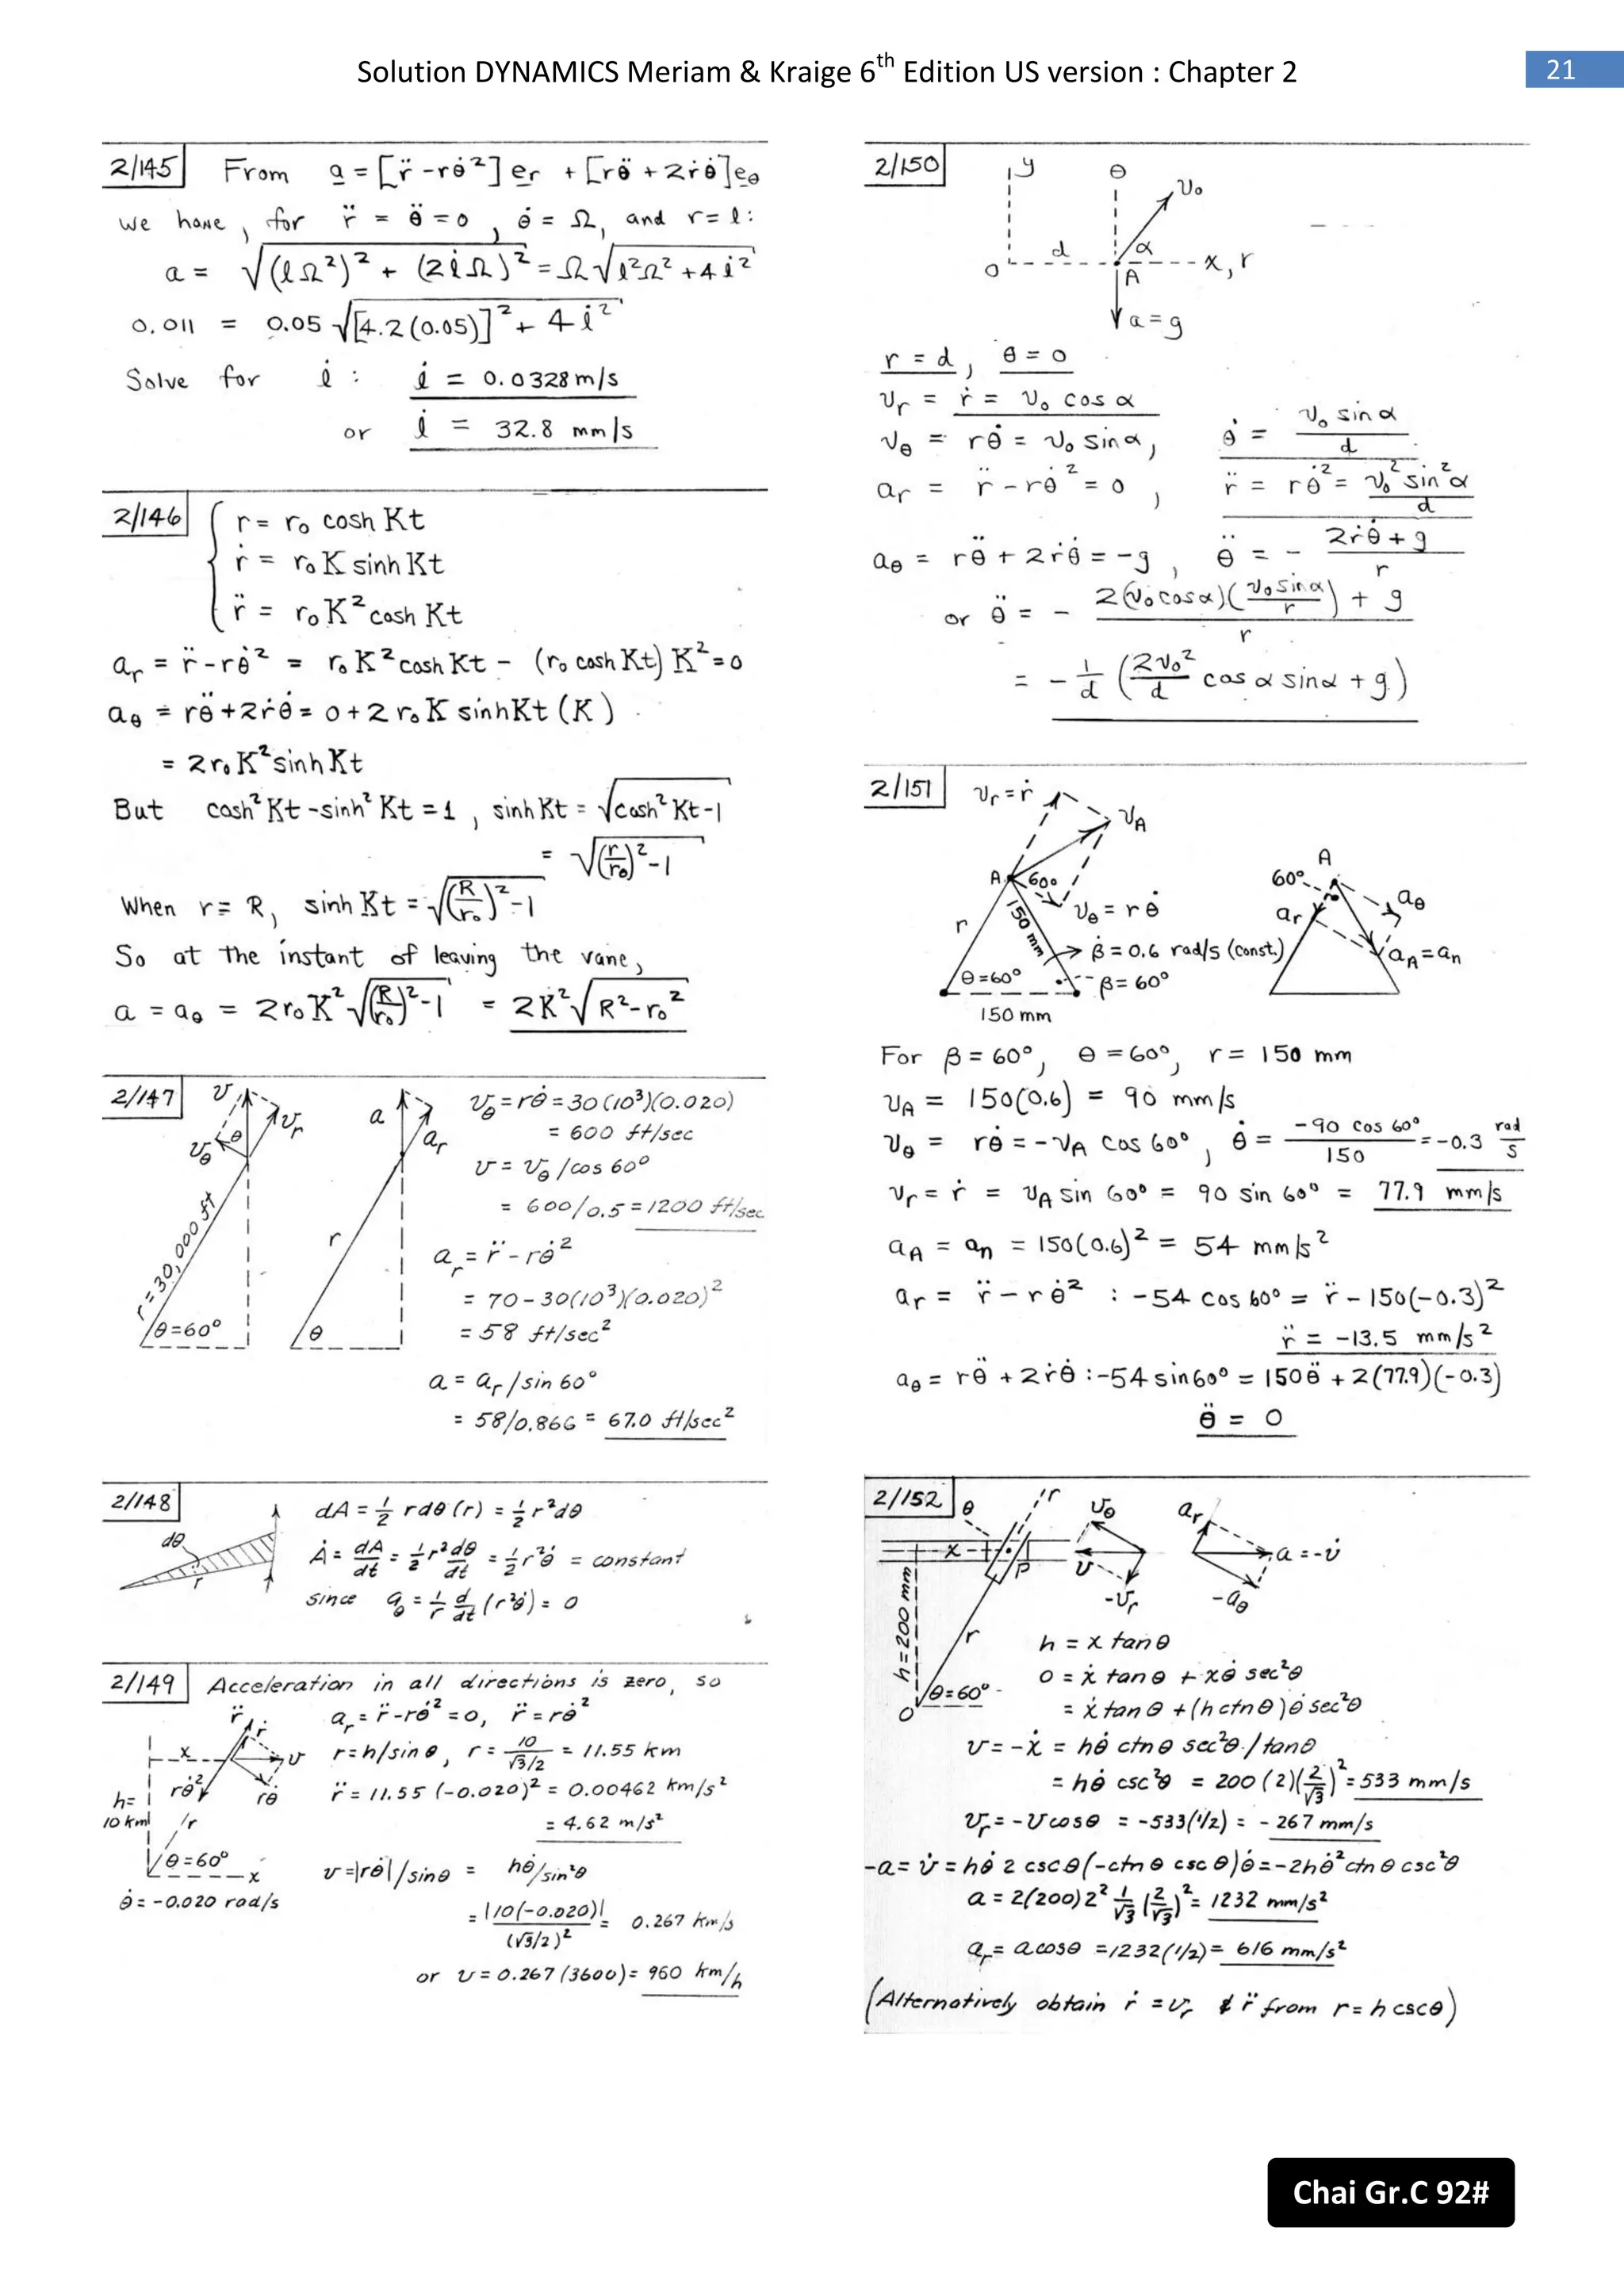 Solution DYNAMICS Meriam & Kraige 6th Edition US version : Chapter 2
21
2/145 From a = [r̈ - rθ̇²] e_r + [rθ̈ + 2ṙθ̇] e_θ
we have, for r̈ = θ̈ = 0, θ̇ = Ω, and r = l:
a = √((lΩ²)² + (2l̇Ω)²) = Ω√(l²Ω² + 4l̇²)
0.011 = 0.05 √([4.2(0.05)]² + 4l̇²)
Solve for l̇ : l̇ = 0.0328 m/s
or l̇ = 32.8 mm/s
2/146 r = r₀ cosh Kt
ṙ = r₀ K sinh Kt
r̈ = r₀ K² cosh Kt
a_r = r̈ - rθ̇² = r₀ K² cosh Kt - (r₀ cosh Kt) K² = 0
a_θ = rθ̈ + 2ṙθ̇ = 0 + 2 r₀ K sinh Kt (K)
= 2r₀ K² sinh Kt
But cosh² Kt - sinh² Kt = 1, sinh Kt = √(cosh² Kt - 1)
= √((r/r₀)² - 1)
When r = R, sinh Kt = √((R/r₀)² - 1)
So at the instant of leaving the vane,
a = a_θ = 2r₀ K² √((R/r₀)² - 1) = 2K² √(R² - r₀²)
2/147 v v_r v_θ θ a a_r
r = 30,000 ft θ = 60° r θ
v_θ = rθ̇ = 30(10³)(0.020)
= 600 ft/sec
v = v_θ / cos 60°
= 600/0.5 = 1200 ft/sec
a_r = r̈ - rθ̇²
= 70 - 30(10³)(0.020)²
= 58 ft/sec²
a = a_r / sin 60°
= 58/0.866 = 67.0 ft/sec²
2/148 dA = ½ r dθ (r) = ½ r² dθ
dθ r
Ȧ = dA/dt = ½ r² dθ/dt = ½ r² θ̇ = constant
since a_θ = 1/r d/dt (r²θ̇) = 0
2/149 Acceleration in all directions is zero, so
a_r = r̈ - rθ̇² = 0, r̈ = rθ̇²
r̈ ṙ x v rθ̇² rθ̇
r = h/sin θ, r = 10/(√3/2) = 11.55 km
r̈ = 11.55 (-0.020)² = 0.00462 km/s²
= 4.62 m/s²
h = 10 km r θ = 60° x
θ̇ = -0.020 rad/s
v = |rθ̇| / sin θ = hθ̇/sin²θ
= |10(-0.020)| / (√3/2)² = 0.267 km/s
or v = 0.267 (3600) = 960 km/h
2/150 y θ v₀
d α x, r
O A
a = g
r = d, θ = 0
v_r = ṙ = v₀ cos α
v_θ = rθ̇ = v₀ sin α, θ̇ = v₀ sin α / d
a_r = r̈ - rθ̇² = 0, r̈ = rθ̇² = v₀² sin² α / d
a_θ = rθ̈ + 2ṙθ̇ = -g, θ̈ = - (2ṙθ̇ + g) / r
or θ̈ = - (2(v₀ cos α)(v₀ sin α / r) + g) / r
= - 1/d (2v₀²/d cos α sin α + g)
2/151 v_r = ṙ v_A
A 60° v_θ = rθ̇
r 150 mm β̇ = 0.6 rad/s (const.)
θ = 60° β = 60°
150 mm
A 60° a_r a_θ a_A = a_n
For β = 60°, θ = 60°, r = 150 mm
v_A = 150(0.6) = 90 mm/s
v_θ = rθ̇ = -v_A cos 60°, θ̇ = -90 cos 60° / 150 = -0.3 rad/s
v_r = ṙ = v_A sin 60° = 90 sin 60° = 77.9 mm/s
a_A = a_n = 150(0.6)² = 54 mm/s²
a_r = r̈ - rθ̇² : -54 cos 60° = r̈ - 150(-0.3)²
r̈ = -13.5 mm/s²
a_θ = rθ̈ + 2ṙθ̇ : -54 sin 60° = 150θ̈ + 2(77.9)(-0.3)
θ̈ = 0
2/152 θ r v_θ a_r
x P v -v_r a = -v̇ -a_θ
h = 200 mm r θ = 60° O
h = x tan θ
0 = ẋ tan θ + xθ̇ sec²θ
= ẋ tan θ + (h ctn θ) θ̇ sec²θ
v = -ẋ = hθ̇ ctn θ sec²θ / tan θ
= hθ̇ csc²θ = 200 (2)(2/√3)² = 533 mm/s
v_r = -v cos θ = -533(1/2) = -267 mm/s
-a = v̇ = hθ̇ 2 csc θ(-ctn θ csc θ)θ̇ = -2hθ̇² ctn θ csc²θ
a = 2(200)2² 1/√3 (2/√3)² = 1232 mm/s²
a_r = a cos θ = 1232(1/2) = 616 mm/s²
(Alternatively obtain ṙ = v_r & r̈ from r = h csc θ)
Chai Gr.C 92#